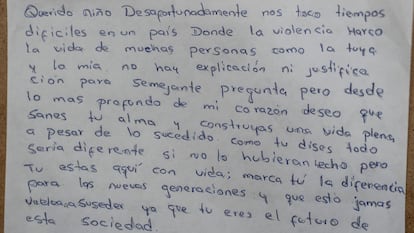 Querido niño Desafortunadamente nos toco tiempos
dificiles en un país Donde la violencia Marco
la vida de muchas personas como la tuya
y la mia. no hay explicación ni justifica
ción para semejante pregunta, pero desde
lo mas profundo de mi corazón deseo que
sanes tu alma y construyas una vida plena
a pesar de lo sucedido. como tu dises todo
seria diferente si no lo hubieran hecho pero
Tu estas aquí con vida; marca tú la diferencia
para las nuevas generaciones y que esto jamas
vuelva a suseder ya que tu eres el futuro de
esta sociedad.